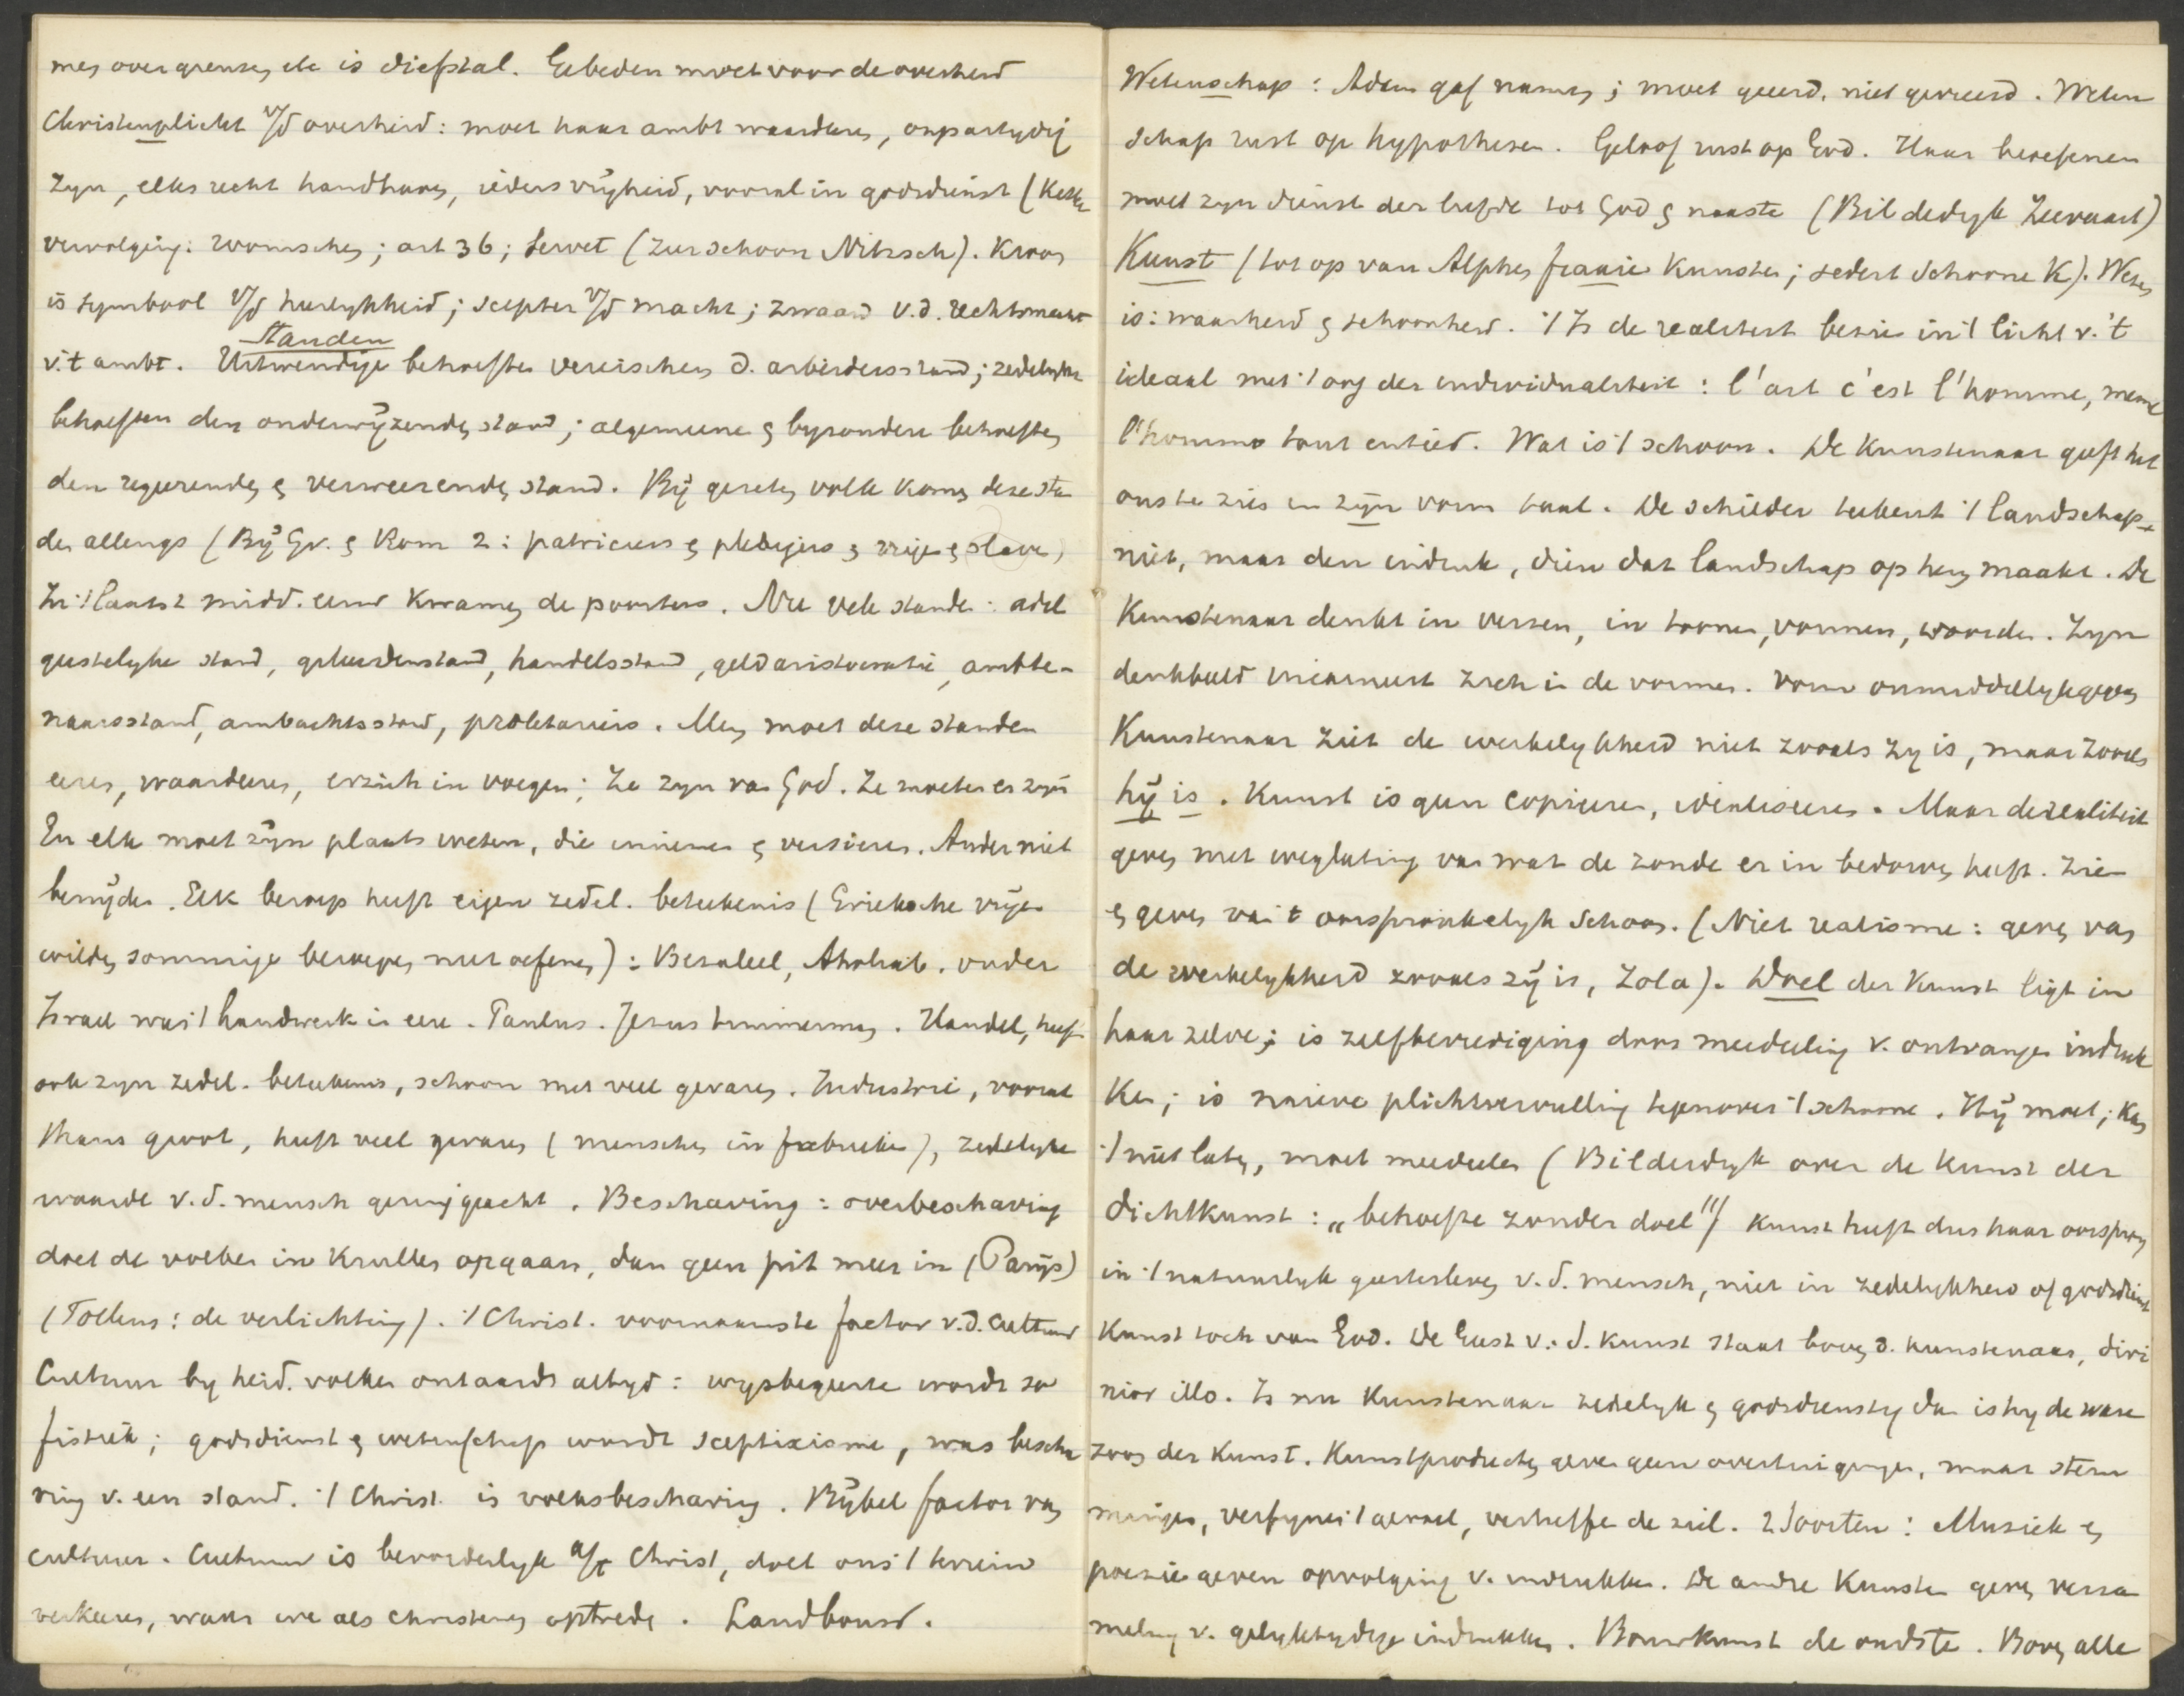 men over grenzen etc is diefstal. Gebeden moet voor de overheid
Christenplicht v/d overheid: moet haar ambt waarderen, onpartydig
zyn, elks recht handhaven, ieders vryheid, vooral in godsdienst (Ketter
vervolging: roomschen; art 36; Servet (zur schoon Nitzsch). Kroon
is symbool v/d heerlykheid; scepter v/d macht; zwaard v.d. rechtsmacht
Standen
v.'t ambt. Uitwendige behoeften vereischen d. arbeidersstand; zedelyke
behoeften den onderwyzenden stand; algemeene & byzondere behoeften
den regeerenden & verweerenden stand. By gezeten volk komen deze stan
den allengs (By Gr. & Rom 2: patriciers & plebejers & vrije & slaven)
In 't laatst midd. eeuw kwamen de poorters. Nu vele standen: adel
geestelyke stand, geleerdenstand, handelsstand, geldaristocratie, ambte-
naarsstand, ambachtsstand, proletariers. Men moet deze standen
eeren, waardeeren, er zich in voegen; Ze zyn van God. Ze moeten er zyn
En elk moet zyn plaats weten, die innemen & versieren. Ander niet
benyden. Elk beroep heeft eigen zedel. beteekenis (Grieksche vryen
wilden sommige beroepen niet oefenen): Bezaleel, Aholiab. onder
Israel was 't handwerk in eere. Paulus. Jezus timmerman. Handel, heeft
ook zyn zedel. beteekenis, schoon met veel gevaren. Industrie, vooral
thans groot, heeft veel gevaren (menschen in fabrieken), zedelyke
waarde v.d. mensch gering geacht. Beschaving: overbeschaving
doet de volken in krullen opgaan, dan geen pit meer in (Parys)
(Tollens: de verlichting). 't Christ. voornaamste factor v.d. cultuur
Cultuur by heid. volken ontaardt altyd: wysbegeerte wordt so
fistiek; godsdienst & wetenschap wordt scepticisme, was bescha
ving v. een stand. 't Christ. is volksbeschaving. Bybel factor van
cultuur. Cultuur is bevorderlyk a/h Christ, doet ons 't terrein
verkeeren, waar we als christenen optreden. Landbouw.
Wetenschap: Adam gaf namen; moet geeerd, niet gevreesd. Weten
schap rust op hypothesen. Geloof rust op God. Haar beoefenen
moet zyn dienst der liefde tot God & naaste (Bilderdyk Zeevaart)
Kunst (tot op van Alphen fraaie kunsten; sedert schoone K). Wezen
is: waarheid & schoonheid. 't Is de realiteit bezien in 't licht v. 't
ideaal met 't oog der individualiteit: l'art c'est l'homme, meme
l'homme tout entier. Wat is 't schoon. De Kunstenaar geeft het
ons te zien in zyn vorm taal. De schilder teekent 't landschap
niet, maar den indruk, dien dat landschap op hem maakt. De
Kunstenaar denkt in verzen, in toonen, vormen, woorden. Zyn
denkbeeld incarneert zich in de vormen. Vorm onmiddellyk gegeven
Kunstenaar ziet de werkelykheid niet zooals zy is, maar zooals
hy is. Kunst is geen copieeren, idealiseeren. Maar de realiteit
geven met weglating van wat de zonde er in bedorven heeft. Zien
& geven van 't oorspronkelyk schoon. (Niet realisme: geven van
de werkelykheid zooals zy is, Zola). Doel der Kunst ligt in
haar zelve; is zelfbevrediging door meedeeling v. ontvangen indruk
ken; is naieve plichtsvervulling tegenover 't schoone. Hy moet; kan
't niet laten, moet meedeelen (Bilderdyk over de kunst der
dichtkunst: „behoefte zonder doel"!) Kunst heeft dus haar oorsprong
in 't natuurlyk geestesleven v.d. mensch, niet in zedelykheid of godsdienst
Kunst toch van God. De Geest v.d. kunst staat boven d. kunstenaar, divi
nior illo. Is nu Kunstenaar zedelyk & godsdienstig dan is hy de ware
zoon der Kunst. Kunstproducten geven geen overtuigingen, maar stem
mingen, verfynen 't gevoel, verheffen de ziel. 2 Soorten: Muziek &
poezie geven opvolging v. indrukken. De andre Kunsten geven verza
meling v. gelyktydige indrukken. Bouwkunst de oudste. Boven alle